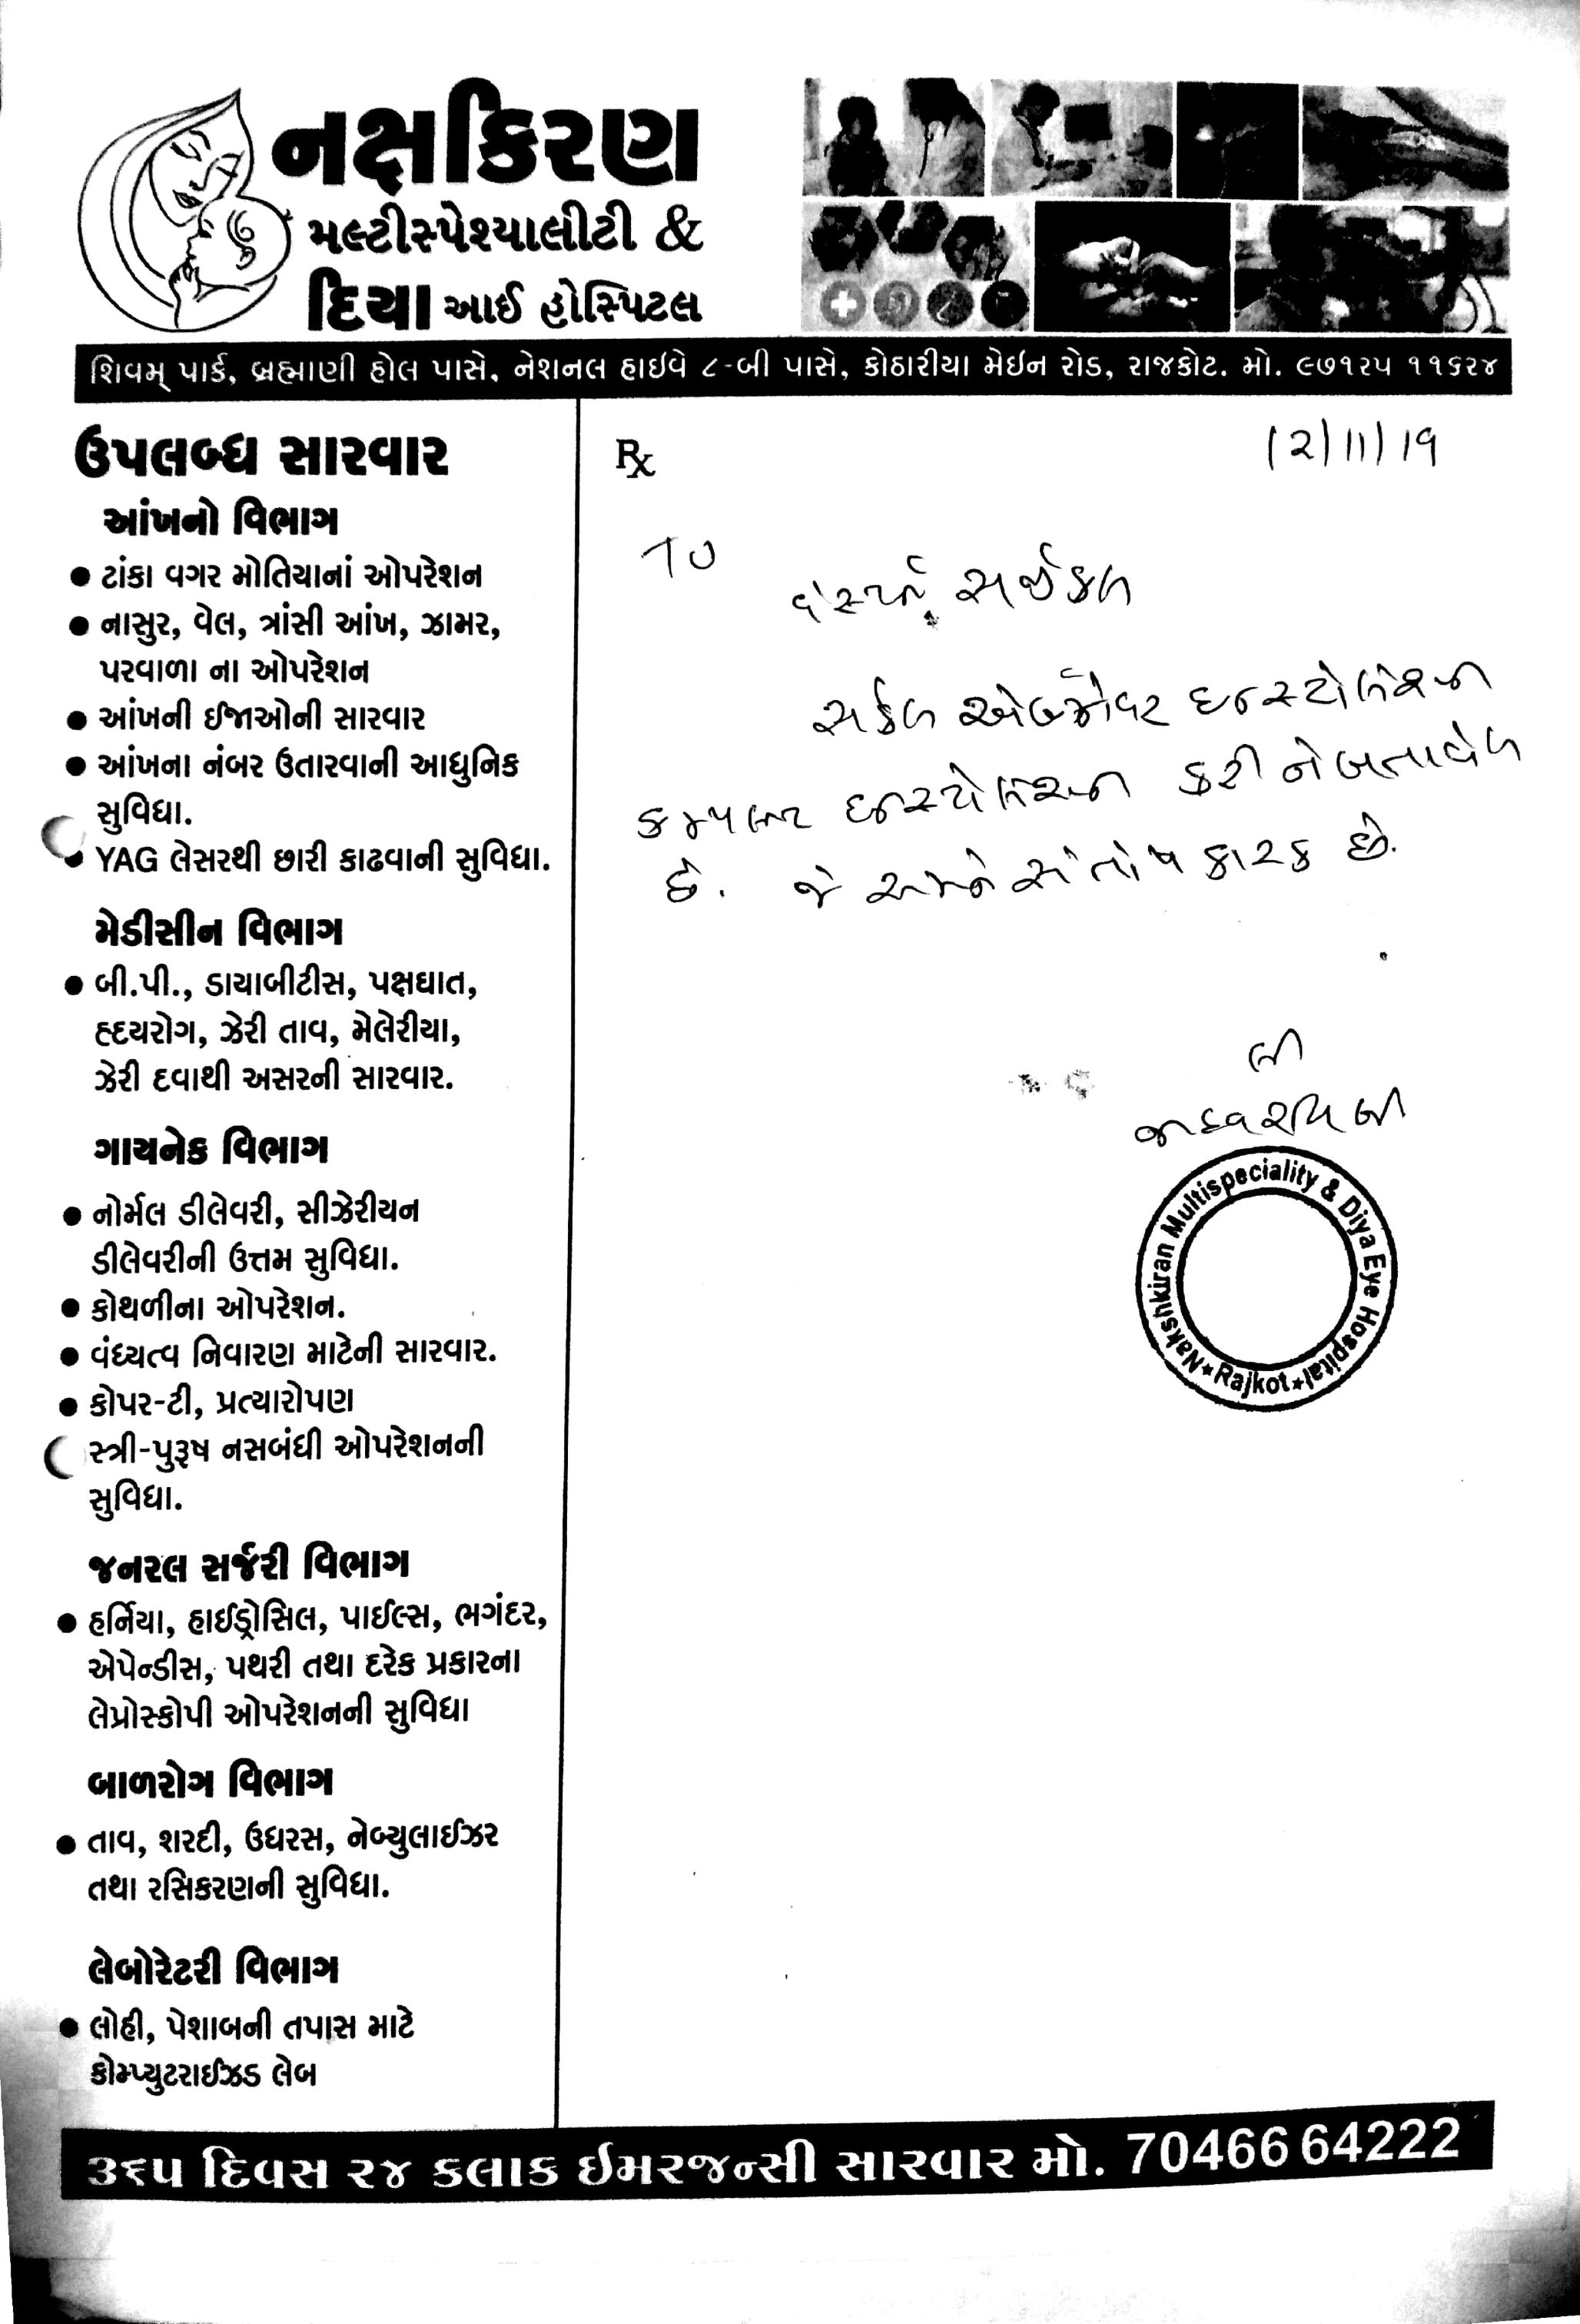 નક્ષકિરણ
મલ્ટીસ્પેશ્યાલીટી &
દિયા આઈ હોસ્પિટલ
શિવમ્ પાર્ક, બ્રહ્માણી હોલ પાસે, નેશનલ હાઇવે ૮-બી પાસે, કોઠારીયા મેઇન રોડ, રાજકોટ. મો. ૯૭૧૨૫ ૧૧૬૨૪
ઉપલબ્ધ સારવાર
આંખનો વિભાગ
● ટાંકા વગર મોતિયાનાં ઓપરેશન
● નાસુર, વેલ, ત્રાંસી આંખ, ઝામર,
પરવાળા ના ઓપરેશન
● આંખની ઈજાઓની સારવાર
● આંખના નંબર ઉતારવાની આધુનિક
સુવિધા.
● YAG લેસરથી છારી કાઢવાની સુવિધા.
મેડીસીન વિભાગ
● બી.પી., ડાયાબીટીસ, પક્ષઘાત,
હ્દયરોગ, ઝેરી તાવ, મેલેરીયા,
ઝેરી દવાથી અસરની સારવાર.
ગાયનેક વિભાગ
● નોર્મલ ડીલેવરી, સીઝેરીયન
ડીલેવરીની ઉત્તમ સુવિધા.
● કોથળીના ઓપરેશન.
● વંધ્યત્વ નિવારણ માટેની સારવાર.
● કોપર-ટી, પ્રત્યારોપણ
સ્ત્રી-પુરૂષ નસબંધી ઓપરેશનની
સુવિધા.
જનરલ સર્જરી વિભાગ
● હર્નિયા, હાઈડ્રોસિલ, પાઈલ્સ, ભગંદર,
એપેન્ડીસ, પથરી તથા દરેક પ્રકારના
લેપ્રોસ્કોપી ઓપરેશનની સુવિધા
બાળરોગ વિભાગ
● તાવ, શરદી, ઉધરસ, નેબ્યુલાઈઝર
તથા રસિકરણની સુવિધા.
લેબોરેટરી વિભાગ
● લોહી, પેશાબની તપાસ માટે
કોમ્પ્યુટરાઈઝડ લેબ
Rx
12/11/19
TO
સર્જીકલ
ઇન્સ્ટોલેશન
ઇન્સ્ટોલેશન કરી ને બતાવેલ
છે. જે અમને સંતોષ કારક છે.
લી
Nakshkiran Multispeciality & Diya Eye Hospital
★ Rajkot ★
૩૬૫ દિવસ ૨૪ કલાક ઇમરજન્સી સારવાર મો. 70466 64222